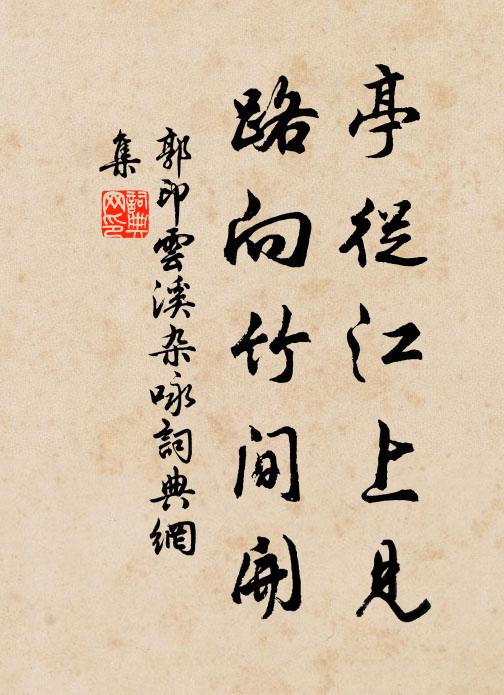 亭從江上見
路向竹間開
郭印雲溪杂咏詞典網
集
詞典
网印